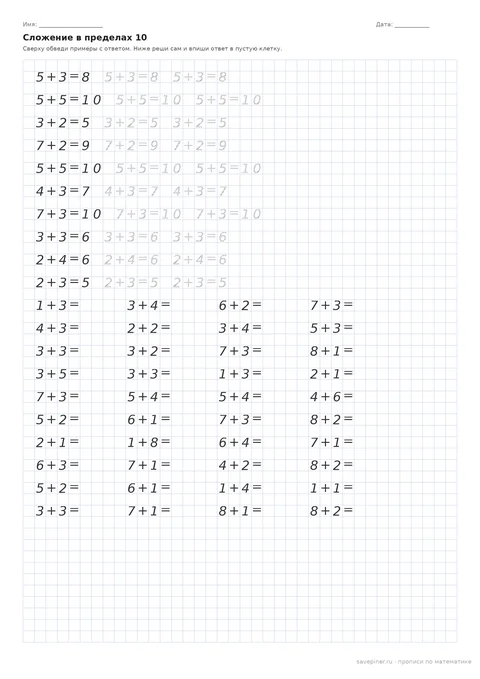 Имя: ____________________ Дата: ___________
Сложение в пределах 10
Сверху обведи примеры с ответом. Ниже реши сам и впиши ответ в пустую клетку.
5+3=8 5+3=8 5+3=8
5+5=10 5+5=10 5+5=10
3+2=5 3+2=5 3+2=5
7+2=9 7+2=9 7+2=9
5+5=10 5+5=10 5+5=10
4+3=7 4+3=7 4+3=7
7+3=10 7+3=10 7+3=10
3+3=6 3+3=6 3+3=6
2+4=6 2+4=6 2+4=6
2+3=5 2+3=5 2+3=5
1+3= 3+4= 6+2= 7+3=
4+3= 2+2= 3+4= 5+3=
3+3= 3+2= 7+3= 8+1=
3+5= 3+3= 1+3= 2+1=
7+3= 5+4= 5+4= 4+6=
5+2= 6+1= 7+3= 8+2=
2+1= 1+8= 6+4= 7+1=
6+3= 7+1= 4+2= 8+2=
5+2= 6+1= 1+4= 1+1=
3+3= 7+1= 8+1= 8+2=
savepiner.ru · прописи по математике